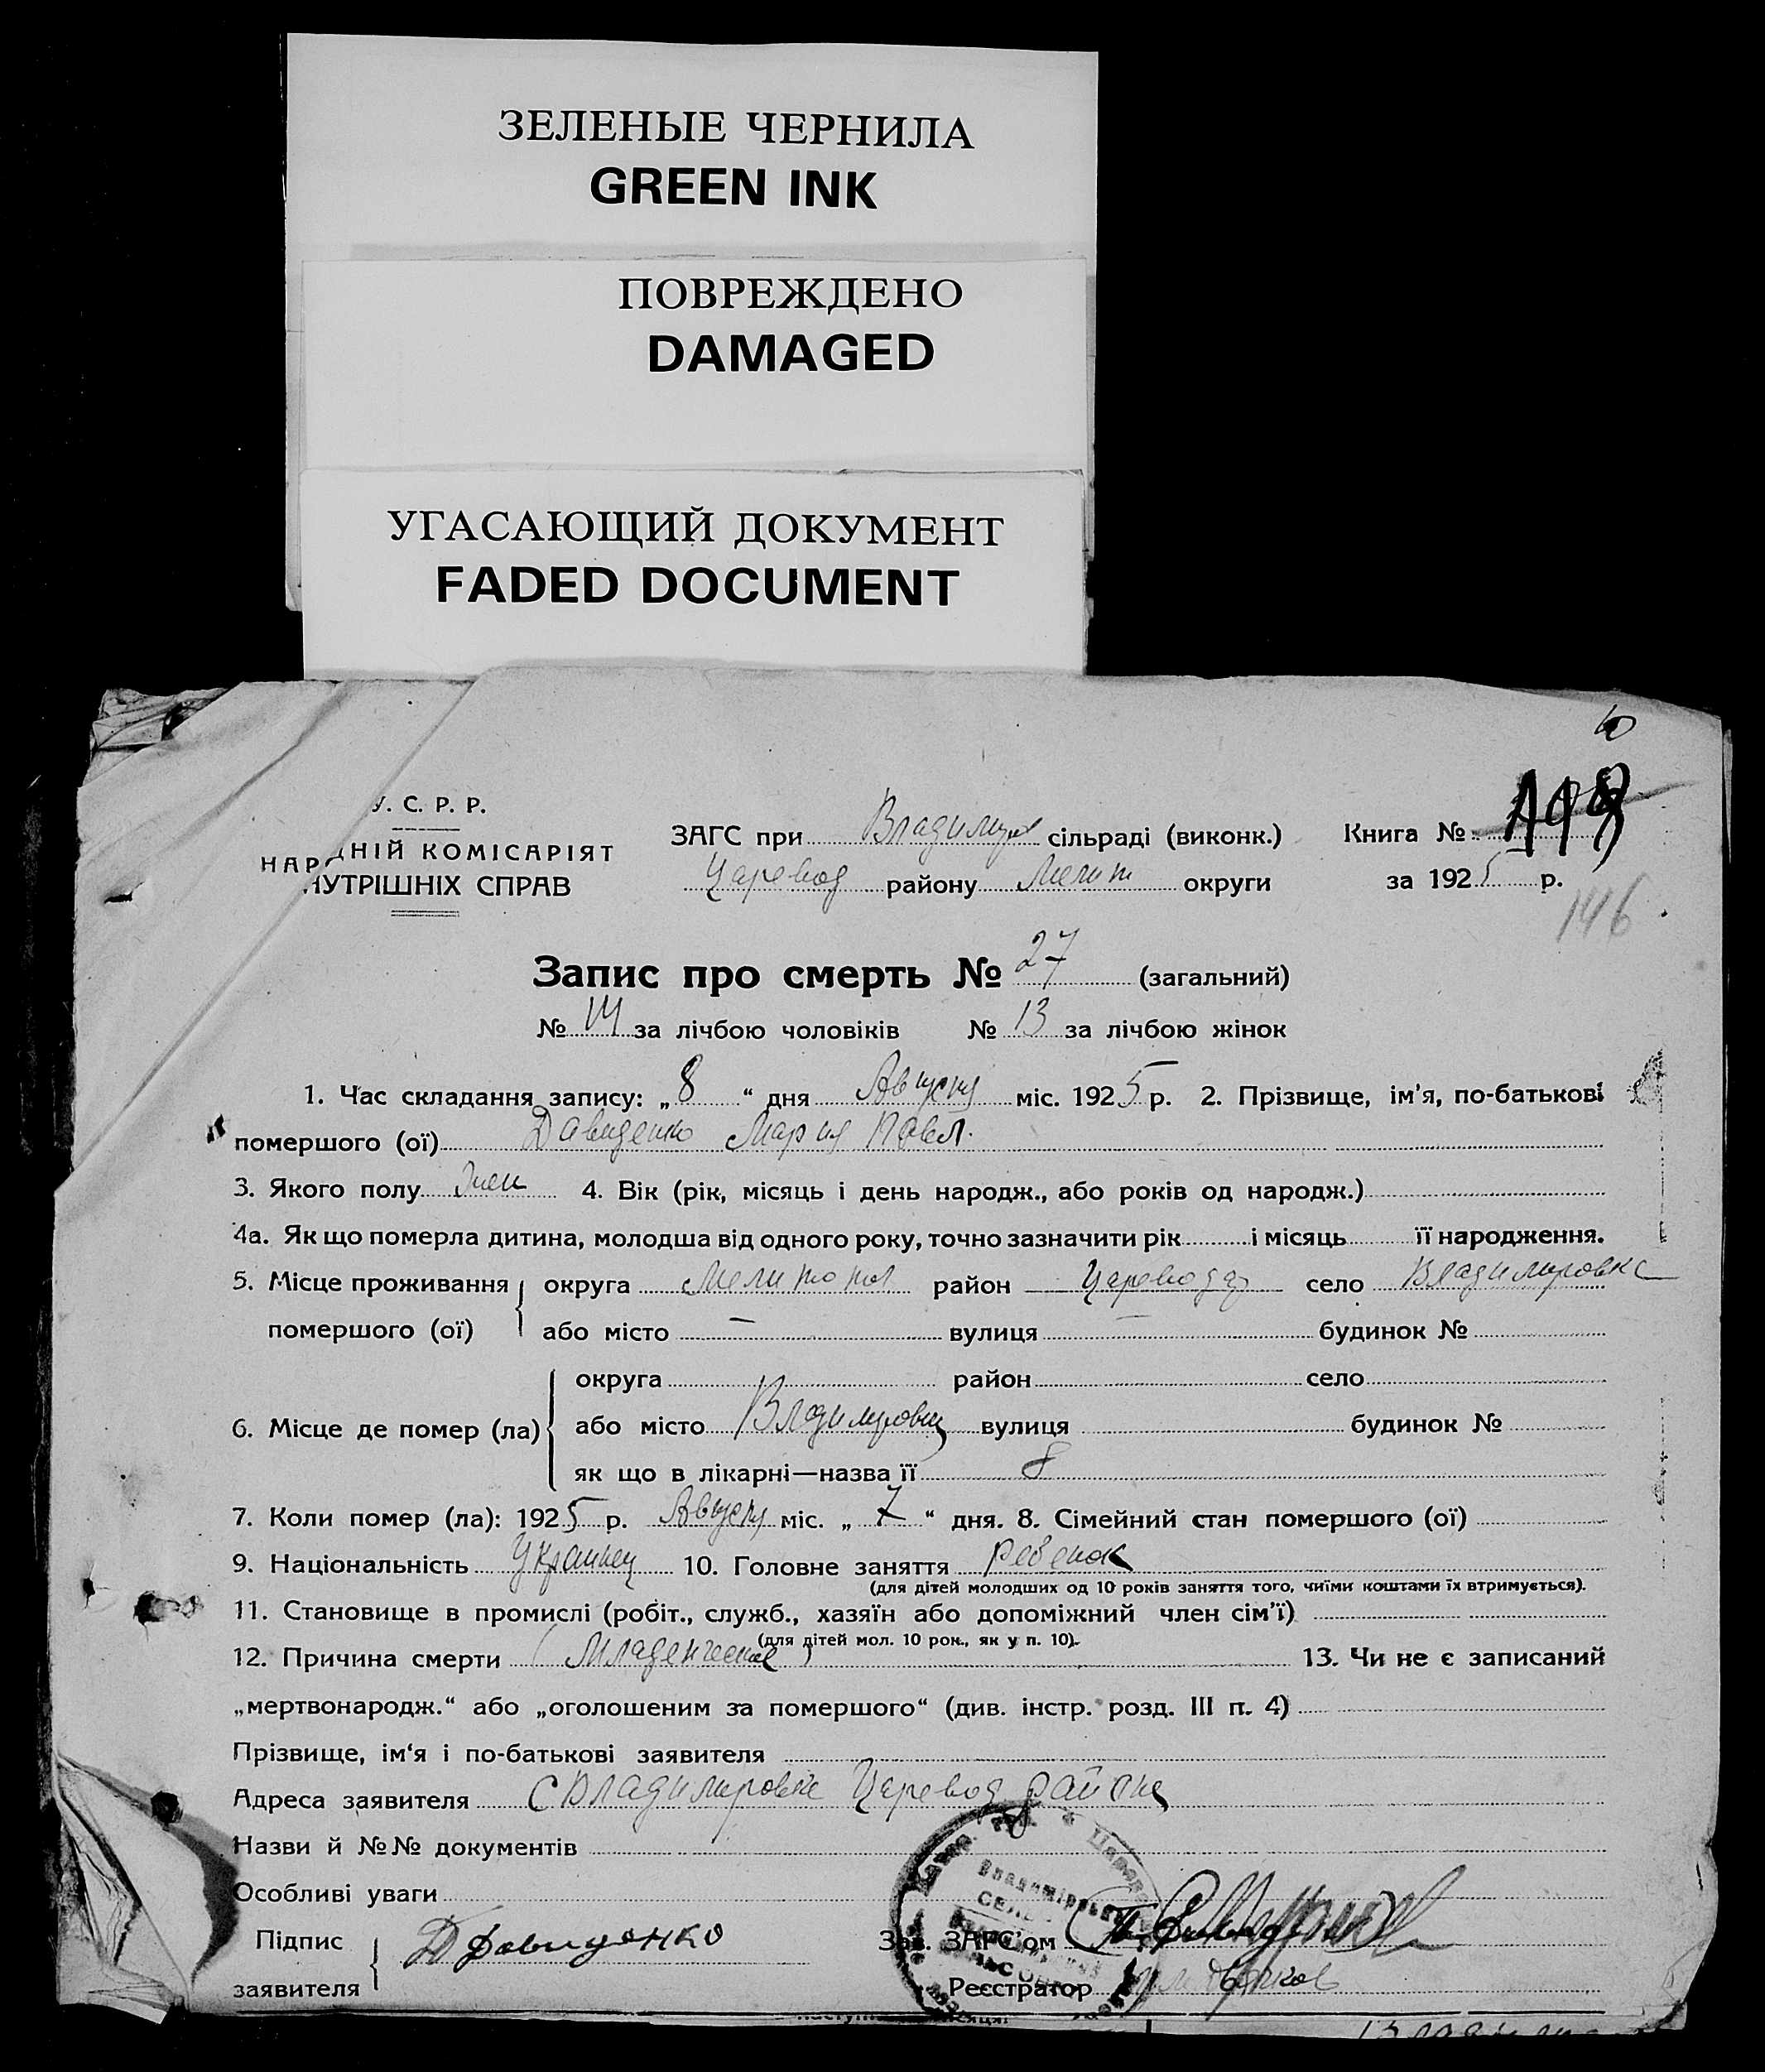 ЗЕЛЕНЫЕ ЧЕРНИЛА
GREEN INK
ПОВРЕЖДЕНО
DAMAGED
УГАСАЮЩИЙ ДОКУМЕНТ
FADED DOCUMENT
У. С. Р. Р.
НАР ДНІЙ КОМІСАРІЯТ
НУТРІШНІХ СПРАВ
ЗАГС при Владимир сільраді (виконк.) Книга №
Царевод району Мелит округи за 1925 р.
146
Запис про смерть № 27 (загальний)
№ 14 за лічбою чоловіків № 13 за лічбою жінок
1. Час складання запису: „8“ дня Августа міс. 1925 р. 2. Прізвище, ім'я, по-батькові
помершого (ої) Давиденко Мария Павл.
3. Якого полу Жен 4. Вік (рік, місяць і день народж., або років од народж.)
4а. Як що померла дитина, молодша від одного року, точно зазначити рік і місяць її народження.
5. Місце проживання округа Мелитопол район Царевода село Владимировка
помершого (ої) або місто — вулиця — будинок №
округа район село
6. Місце де помер (ла) або місто Владимировка вулиця будинок №
як що в лікарні—назва її
7. Коли помер (ла): 1925 р. Августа міс. „7“ дня. 8. Сімейний стан помершого (ої)
9. Національність Украинец 10. Головне заняття ребенок
(для дітей молодших од 10 років заняття того, чиїми коштами їх втримується).
11. Становище в промислі (робіт., служб., хазяїн або допоміжний член сім'ї)
(для дітей мол. 10 рок., як у п. 10).
12. Причина смерти (Младенческая) 13. Чи не є записаний
„мертвонародж.“ або „оголошеним за помершого“ (див. інстр. розд. III п. 4)
Прізвище, ім'я і по-батькові заявителя
Адреса заявителя С Владимировка Царевод района
Назви й №№ документів
Особливі уваги
Підпис Давиденко Зав. ЗАГС'ом
заявителя Реєстратор